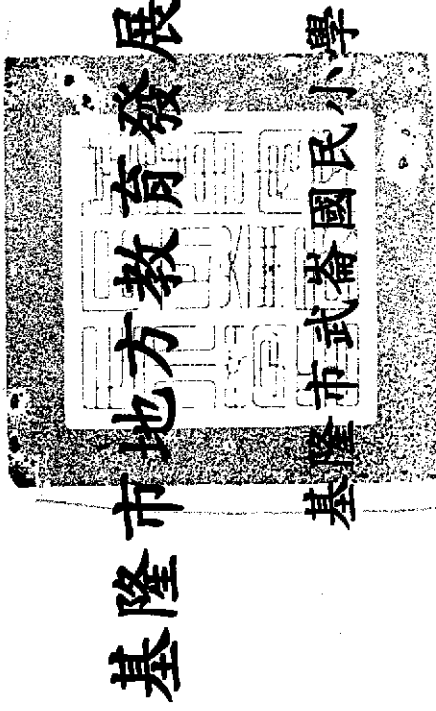 基隆市地方教育發展
基隆市武崙國民小學